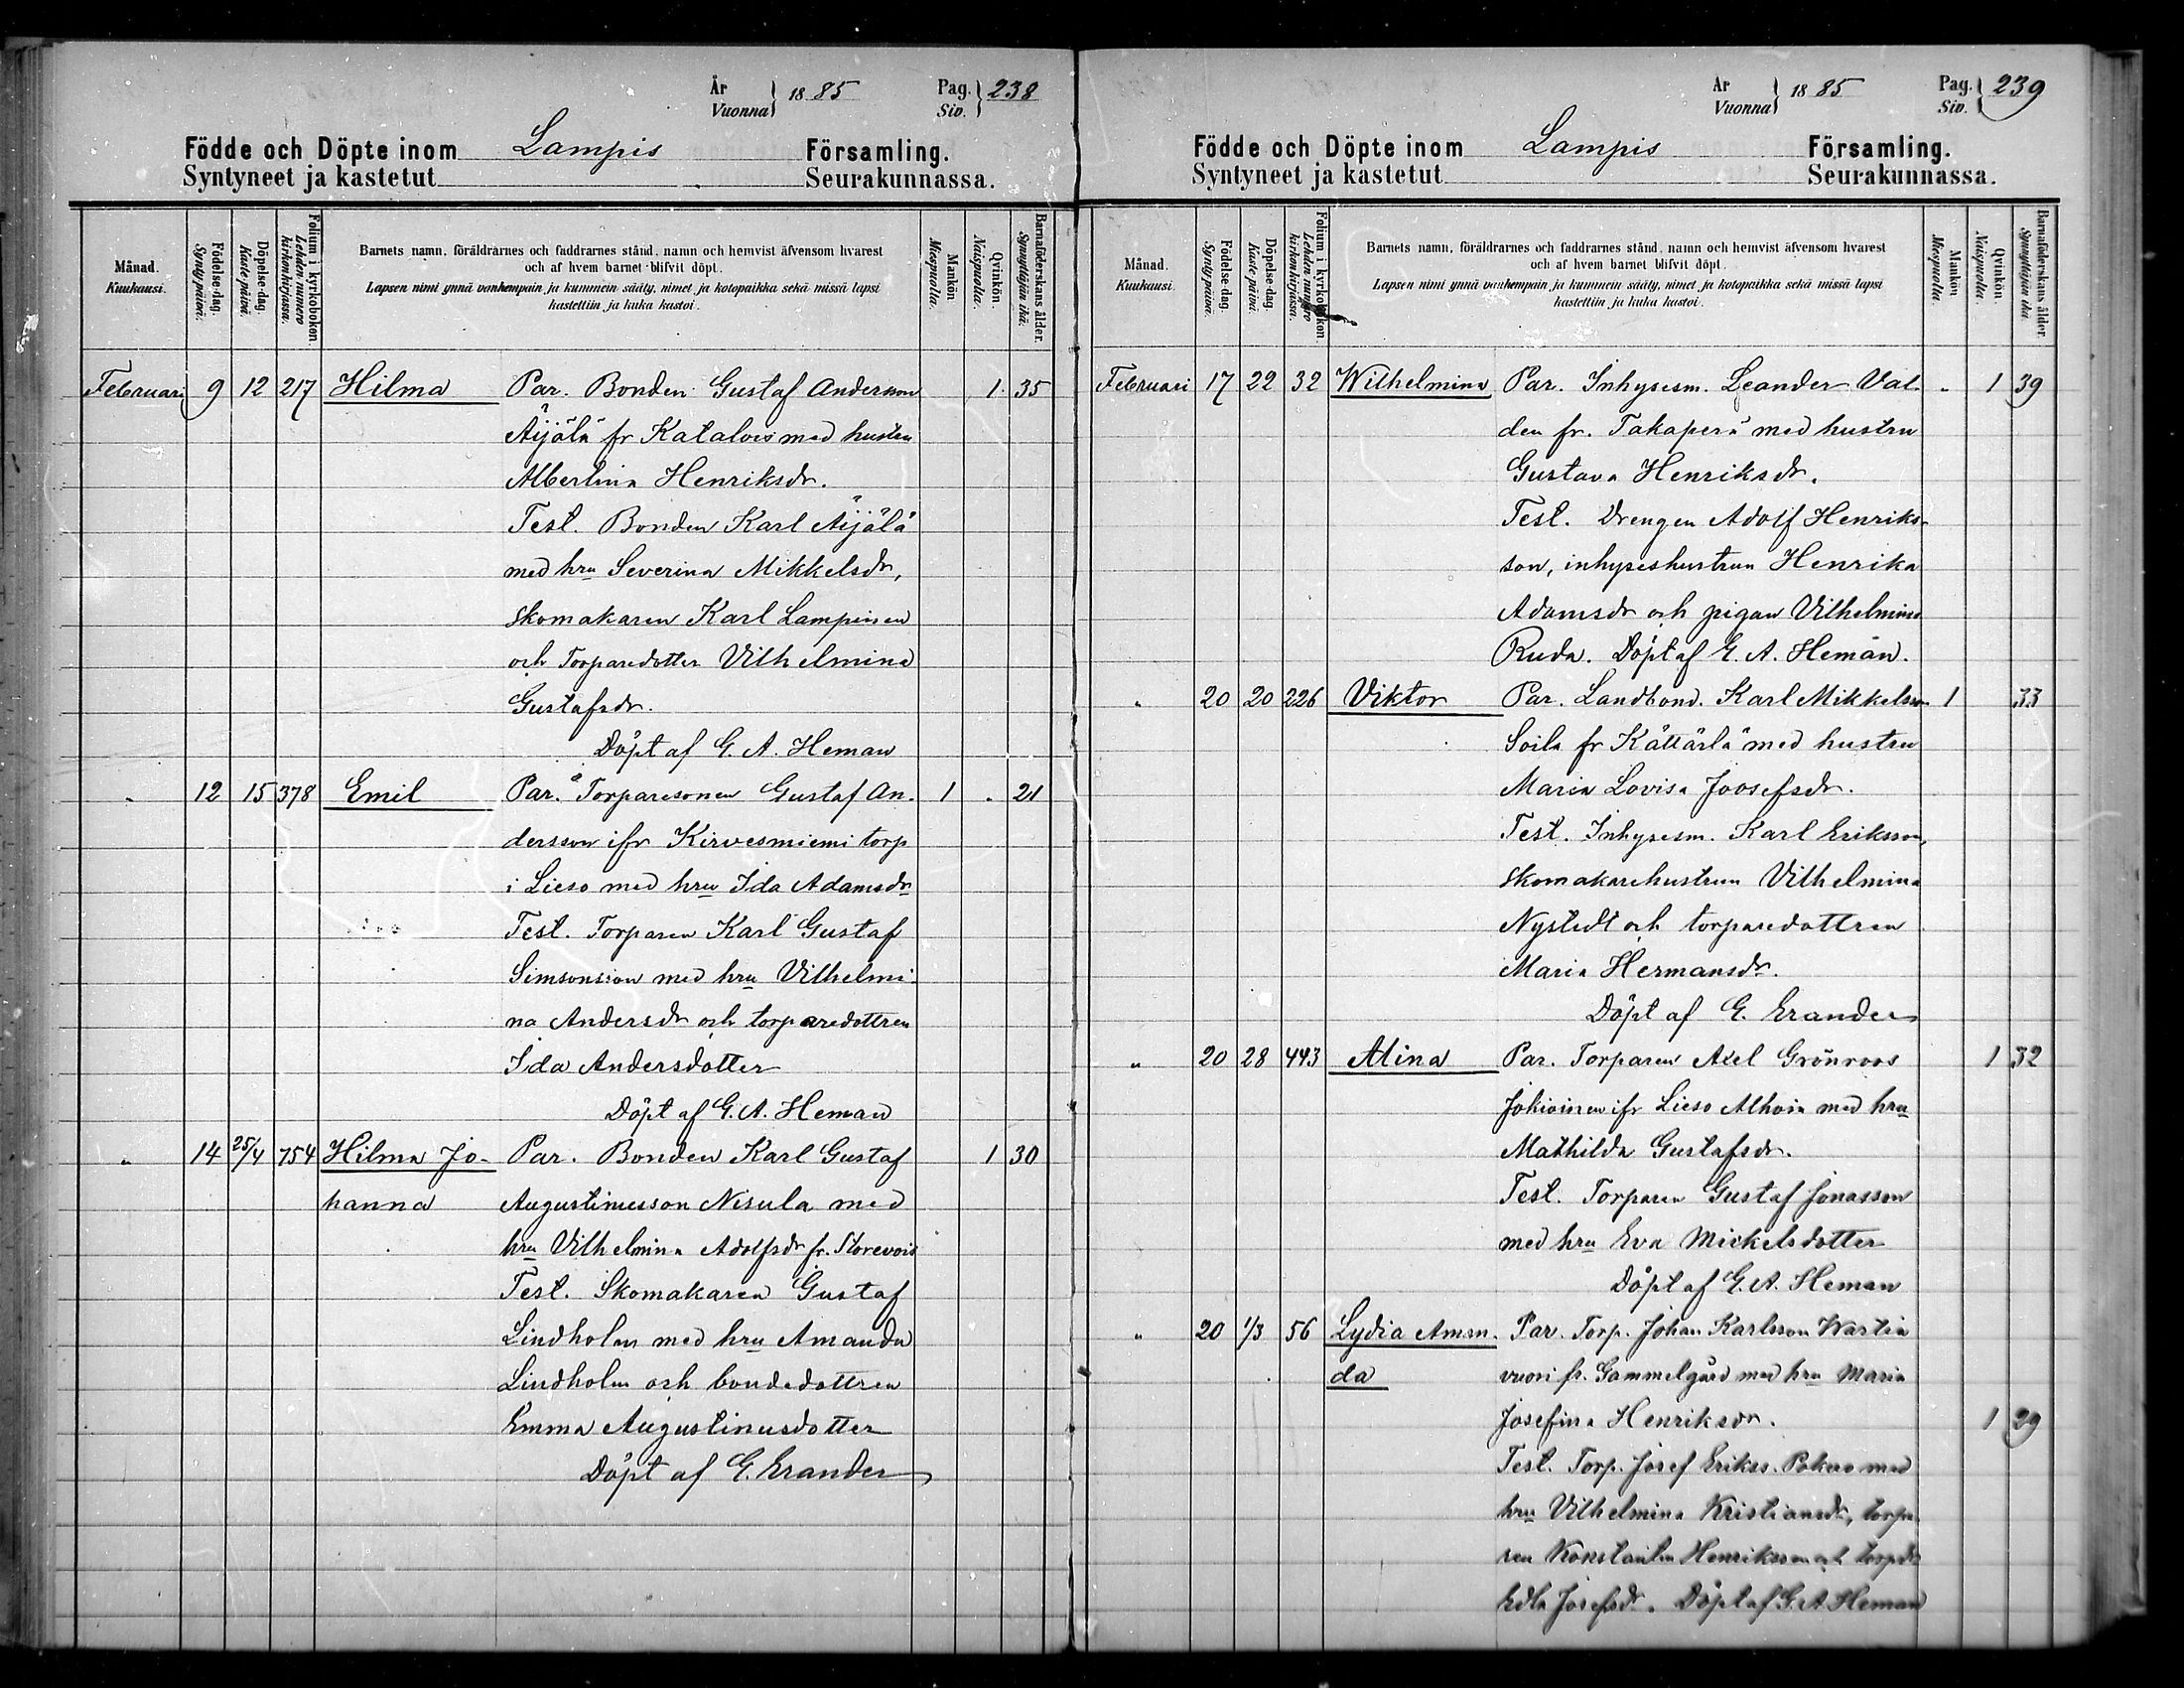 År
Vuonna } 1885 Pag.
Siv. } 238
Födde och Döpte inom Lampis Församling.
Syntyneet ja kastetut Seurakunnassa.
Månad.
Kuukausi.
Födelse-dag.
Synty päivä.
Döpelse-dag.
Kaste päivä.
Folium i kyrkoboken.
Lehden numero
kirkon kirjassa.
Barnets namn, föräldrarnes och faddrarnes stånd, namn och hemvist äfvensom hvarest
och af hvem barnet blifvit döpt.
Lapsen nimi ynnä vanhempain ja kummein sääty, nimet ja kotopaikka sekä missä lapsi
kastettiin ja kuka kastoi.
Mankön
Miespuolta.
Qvinkön.
Naispuolta.
Barnaföderskans ålder.
Synnyttäjän ikä.
Februari 9 12 217 Hilma Par. Bonden Gustaf Andersson 1. 35
Äijälä fr Kataloismed hustru
Albertina Henriksdr.
Test. Bonden Karl Äijälä
med hru Severina Mikkelsdr,
skomakaren Karl Lampinen
och Torparedotter Vilhelmina
Gustafsdr.
Döpt af G. A. Heman
" 12 15 378 Emil Par. Torparesonen Gustaf An- 1 . 21
dersson ifr Kirvesniemi torp
i Lieso med hru Ida Adamsdr
Test. Torparen Karl Gustaf
Simsonsson med hru Vilhelmi-
na Andersdr och torparedottren
Ida Andersdotter
Döpt af G. A. Heman
" 14 25/4 754 Hilma Jo- Par. Bonden Karl Gustaf 1 30
hanna Augustinusson Nisula med
hru Vilhelmina Adolfsdr fr. Storevois
Test. Skomakaren Gustaf
Lindholm med hru Amanda
Lindholm och bondedottren
Emma Augustinusdotter
Döpt af G. Erander
År
Vuonna } 1885 Pag.
Siv. } 239
Födde och Döpte inom Lampis Församling.
Syntyneet ja kastetut Seurakunnassa.
Månad.
Kuukausi.
Födelse dag.
Synty päivä.
Döpelse dag.
Kaste päivä.
Folium i kyrkoboken.
Lehden numero
kirkon kirjassa.
Barnets namn, föräldrarnes och faddrarnes stånd, namn och hemvist äfvensom hvarest
och af hvem barnet blifvit döpt.
Lapsen nimi ynnä vanhempain ja kummein sääty, nimet ja kotopaikka sekä missä lapsi
kastettiin ja kuka kastoi.
Mankön
Miespuolta.
Qvinkön.
Naispuolta.
Barnaföderskans ålder.
Synnyttäjän ikä.
Februari 17 22 32 Wilhelmina Par. Inhysesm. Leander Val- " 1 39
den fr. Takaperä med hustru
Gustava Henriksdr.
Test. Drengen Adolf Henriks-
son, inhyseshustrun Henrika
Adamsdr och pigan Vilhelmina
Ruda. Döpt af G. A. Heman.
" 20 20 226 Viktor Par. Landbond. Karl Mikkelsson 1 33
Soila fr Kättärlä med hustru
Maria Lovisa Joosefsdr.
Test. Inhysesm. Karl Eriksson,
skomakarehustrun Vilhelmina
Nystedt och torparedottren
Maria Hermansdr.
Döpt af G. Erander
" 20 28 443 Alina Par. Torparen Axel Grönroos 1 32
Johioinen ifr Lieso Alhois med hru
Mathilda Gustafsdr.
Test. Torparen Gustaf Jonasson
med hru Eva Mickelsdotter
Döpt af G. A. Heman
" 20 1/3 56 Lydia Aman- Par. Torp. Johan Karlsson Wartia
da vuori fr. Gammelgård med hru Maria
Josefina Henriksdr. 1 29
Test. Torp. Josef Erikss. med
hru Vilhelmina Kristiansdr, torpa-
ren Konstantin Henriksson och torpdr
Edla Josefsdr. Döpt af G. A. Heman